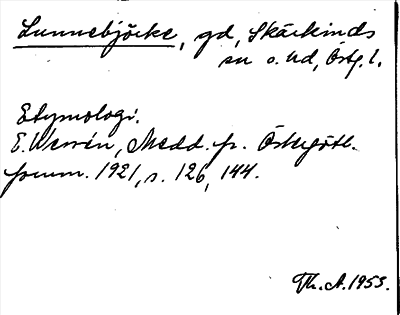 Lunnebjörke, gd, Skärkinds
sn o. hd, Östg. l.
Etymologi.
E. Wennén, Medd. fr. Östergötl.
fornm. 1921, s. 126, 144.
Th. A. 1953.